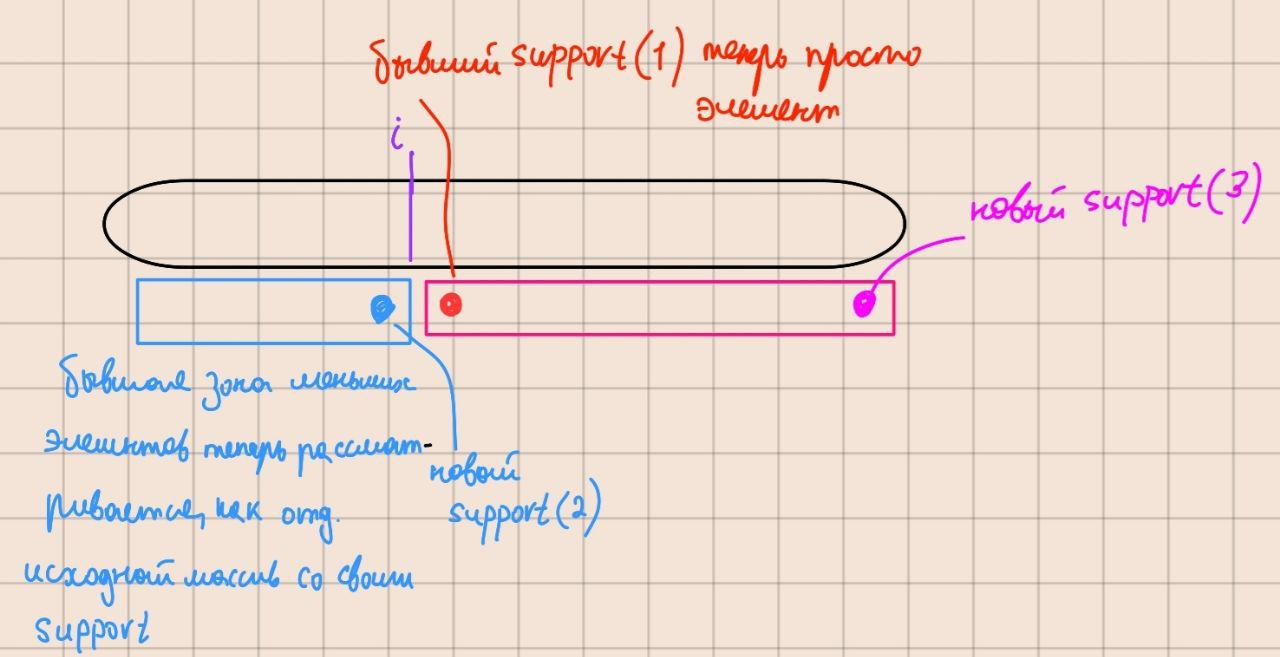 бывший support(1) теперь просто
элемент
i
новый support(3)
бывшая зона меньших
элементов теперь рассмат-
ривается, как отд.
исходный массив со своим
support
новый
support(2)